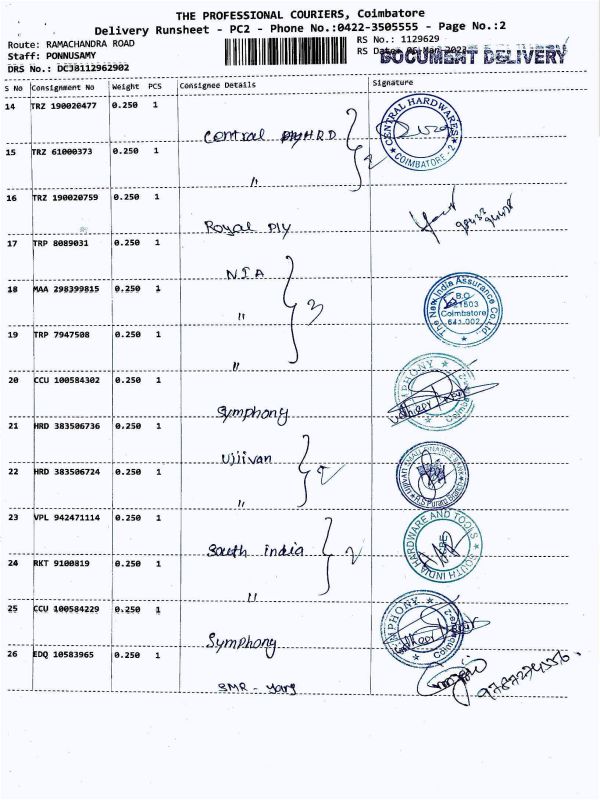 THE PROFESSIONAL COURIERS, Coimbatore
Delivery Runsheet - PC2 - Phone No.:0422-3505555 - Page No.:2
Route: RAMACHANDRA ROAD
RS No.: 1129629
Staff: PONNUSAMY
RS Date: 06 Mar 2023
DOCUMENT DELIVERY
DRS No.: DCJB1129629O2
S No Consignment No Weight PCS Consignee Details Signature
14 TRZ 190020477 0.250 1
Central HRD
CENTRAL HARDWARES
COIMBATORE - 2
2
15 TRZ 61000373 0.250 1
"
16 TRZ 190020759 0.250 1
Royal Ply
17 TRP 8089031 0.250 1
NIA
3
18 MAA 298399815 0.250 1
"
The New India Assurance Co. Ltd
B.O
Coimbatore
641 002
19 TRP 7947508 0.250 1
"
20 CCU 100584302 0.250 1
Symphony
SYMPHONY
21 HRD 383506736 0.250 1
Ujjivan
2
22 HRD 383506724 0.250 1
"
23 VPL 942471114 0.250 1
South india
2
SOUTH INDIA HARDWARE AND TOOLS
24 RKT 9100819 0.250 1
"
25 CCU 100584229 0.250 1
Symphony
SYMPHONY
26 EDQ 10583965 0.250 1
SMR - yarg